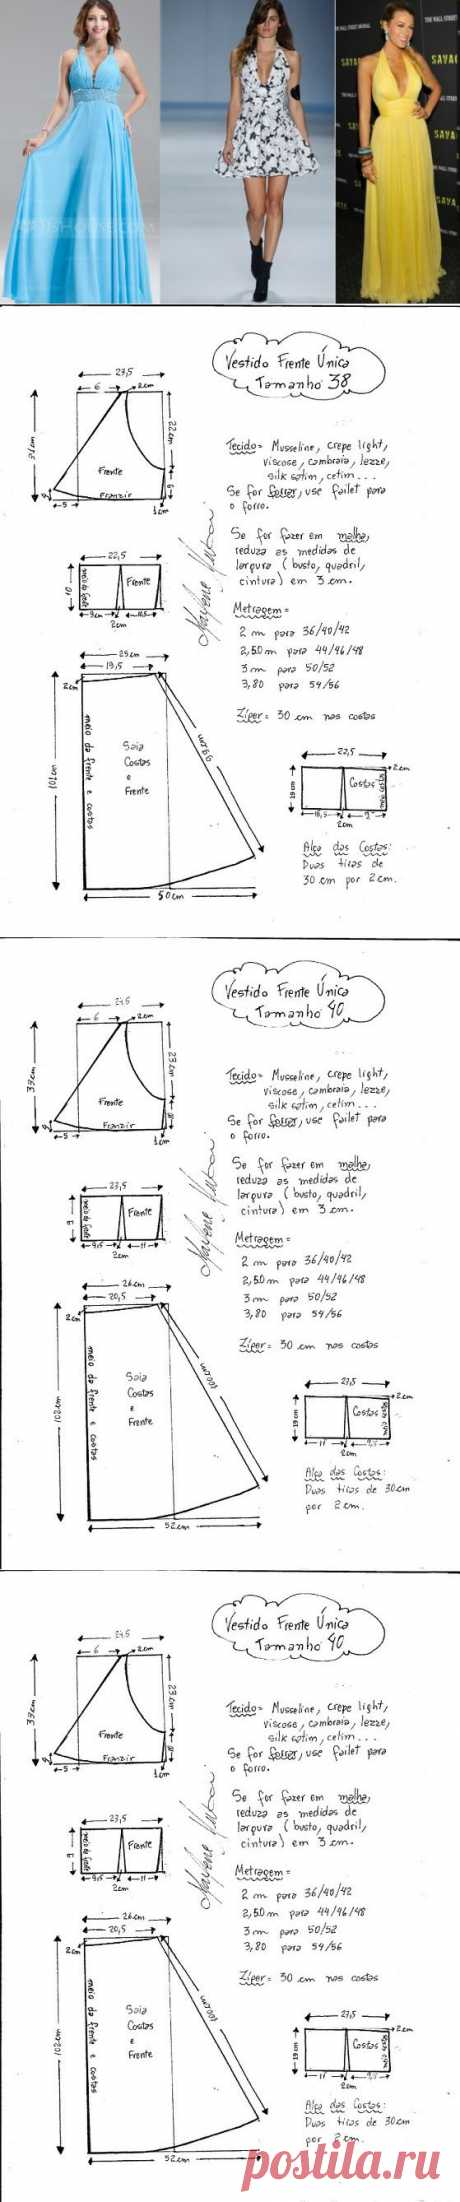 THE WALL STREET JOURNAL
SAVAG
Vestido Frente Única
Tamanho 38
23,5
6
2cm
22cm
Frente
Franzir
5
1cm
Tecido= Musseline, crepe light,
viscose, cambraia, lezze,
silk satim, cetim...
Se for forrar, use failet para
o forro.
Se for fazer em malha,
reduza as medidas de
largura (busto, quadril,
cintura) em 3 cm.
Metragem=
2 m para 36/40/42
2,50m para 44/46/48
3m para 50/52
3,80 para 54/56
Zíper= 30 cm nas costas
22,5
10
Frente
9cm
2cm
25cm
19,5
2cm
meio da frente e costas
101cm
Saia
Costas
e
Frente
99cm
50cm
22,5
2cm
19cm
Costas
meio costas
2cm
Alça das Costas:
Duas tiras de
30cm por 2cm.
Vestido Frente Única
Tamanho 40
24,5
6
2cm
23cm
33cm
Frente
Franzir
5
1cm
Tecido= Musseline, crepe light,
viscose, cambraia, lezze,
silk satim, cetim...
Se for forrar, use failet para
o forro.
Se for fazer em malha,
reduza as medidas de
largura (busto, quadril,
cintura) em 3 cm.
Metragem=
2 m para 36/40/42
2,50m para 44/46/48
3m para 50/52
3,80 para 54/56
Zíper= 30 cm nas costas
23,5
9
Frente
9,5
11
2cm
26cm
20,5
2cm
meio da frente e costas
102cm
Saia
Costas
e
Frente
100cm
52cm
23,5
2cm
19cm
Costas
meio costas
11
9,5
2cm
Alça das Costas:
Duas tiras de 30cm
por 2cm.
Vestido Frente Única
Tamanho 40
24,5
6
2cm
23cm
33cm
Frente
Franzir
5
1cm
Tecido= Musseline, crepe light,
viscose, cambraia, lezze,
silk satim, cetim...
Se for forrar, use failet para
o forro.
Se for fazer em malha,
reduza as medidas de
largura (busto, quadril,
cintura) em 3 cm.
Metragem=
2 m para 36/40/42
2,50m para 44/46/48
3m para 50/52
3,80 para 54/56
Zíper= 30 cm nas costas
23,5
9
Frente
9,5
11
2cm
26cm
20,5
2cm
meio da frente e costas
102cm
Saia
Costas
e
Frente
100cm
52cm
23,5
2cm
19cm
Costas
meio costas
11
9,5
2cm
Alça das Costas:
Duas tiras de 30cm
por 2cm.
postila.ru